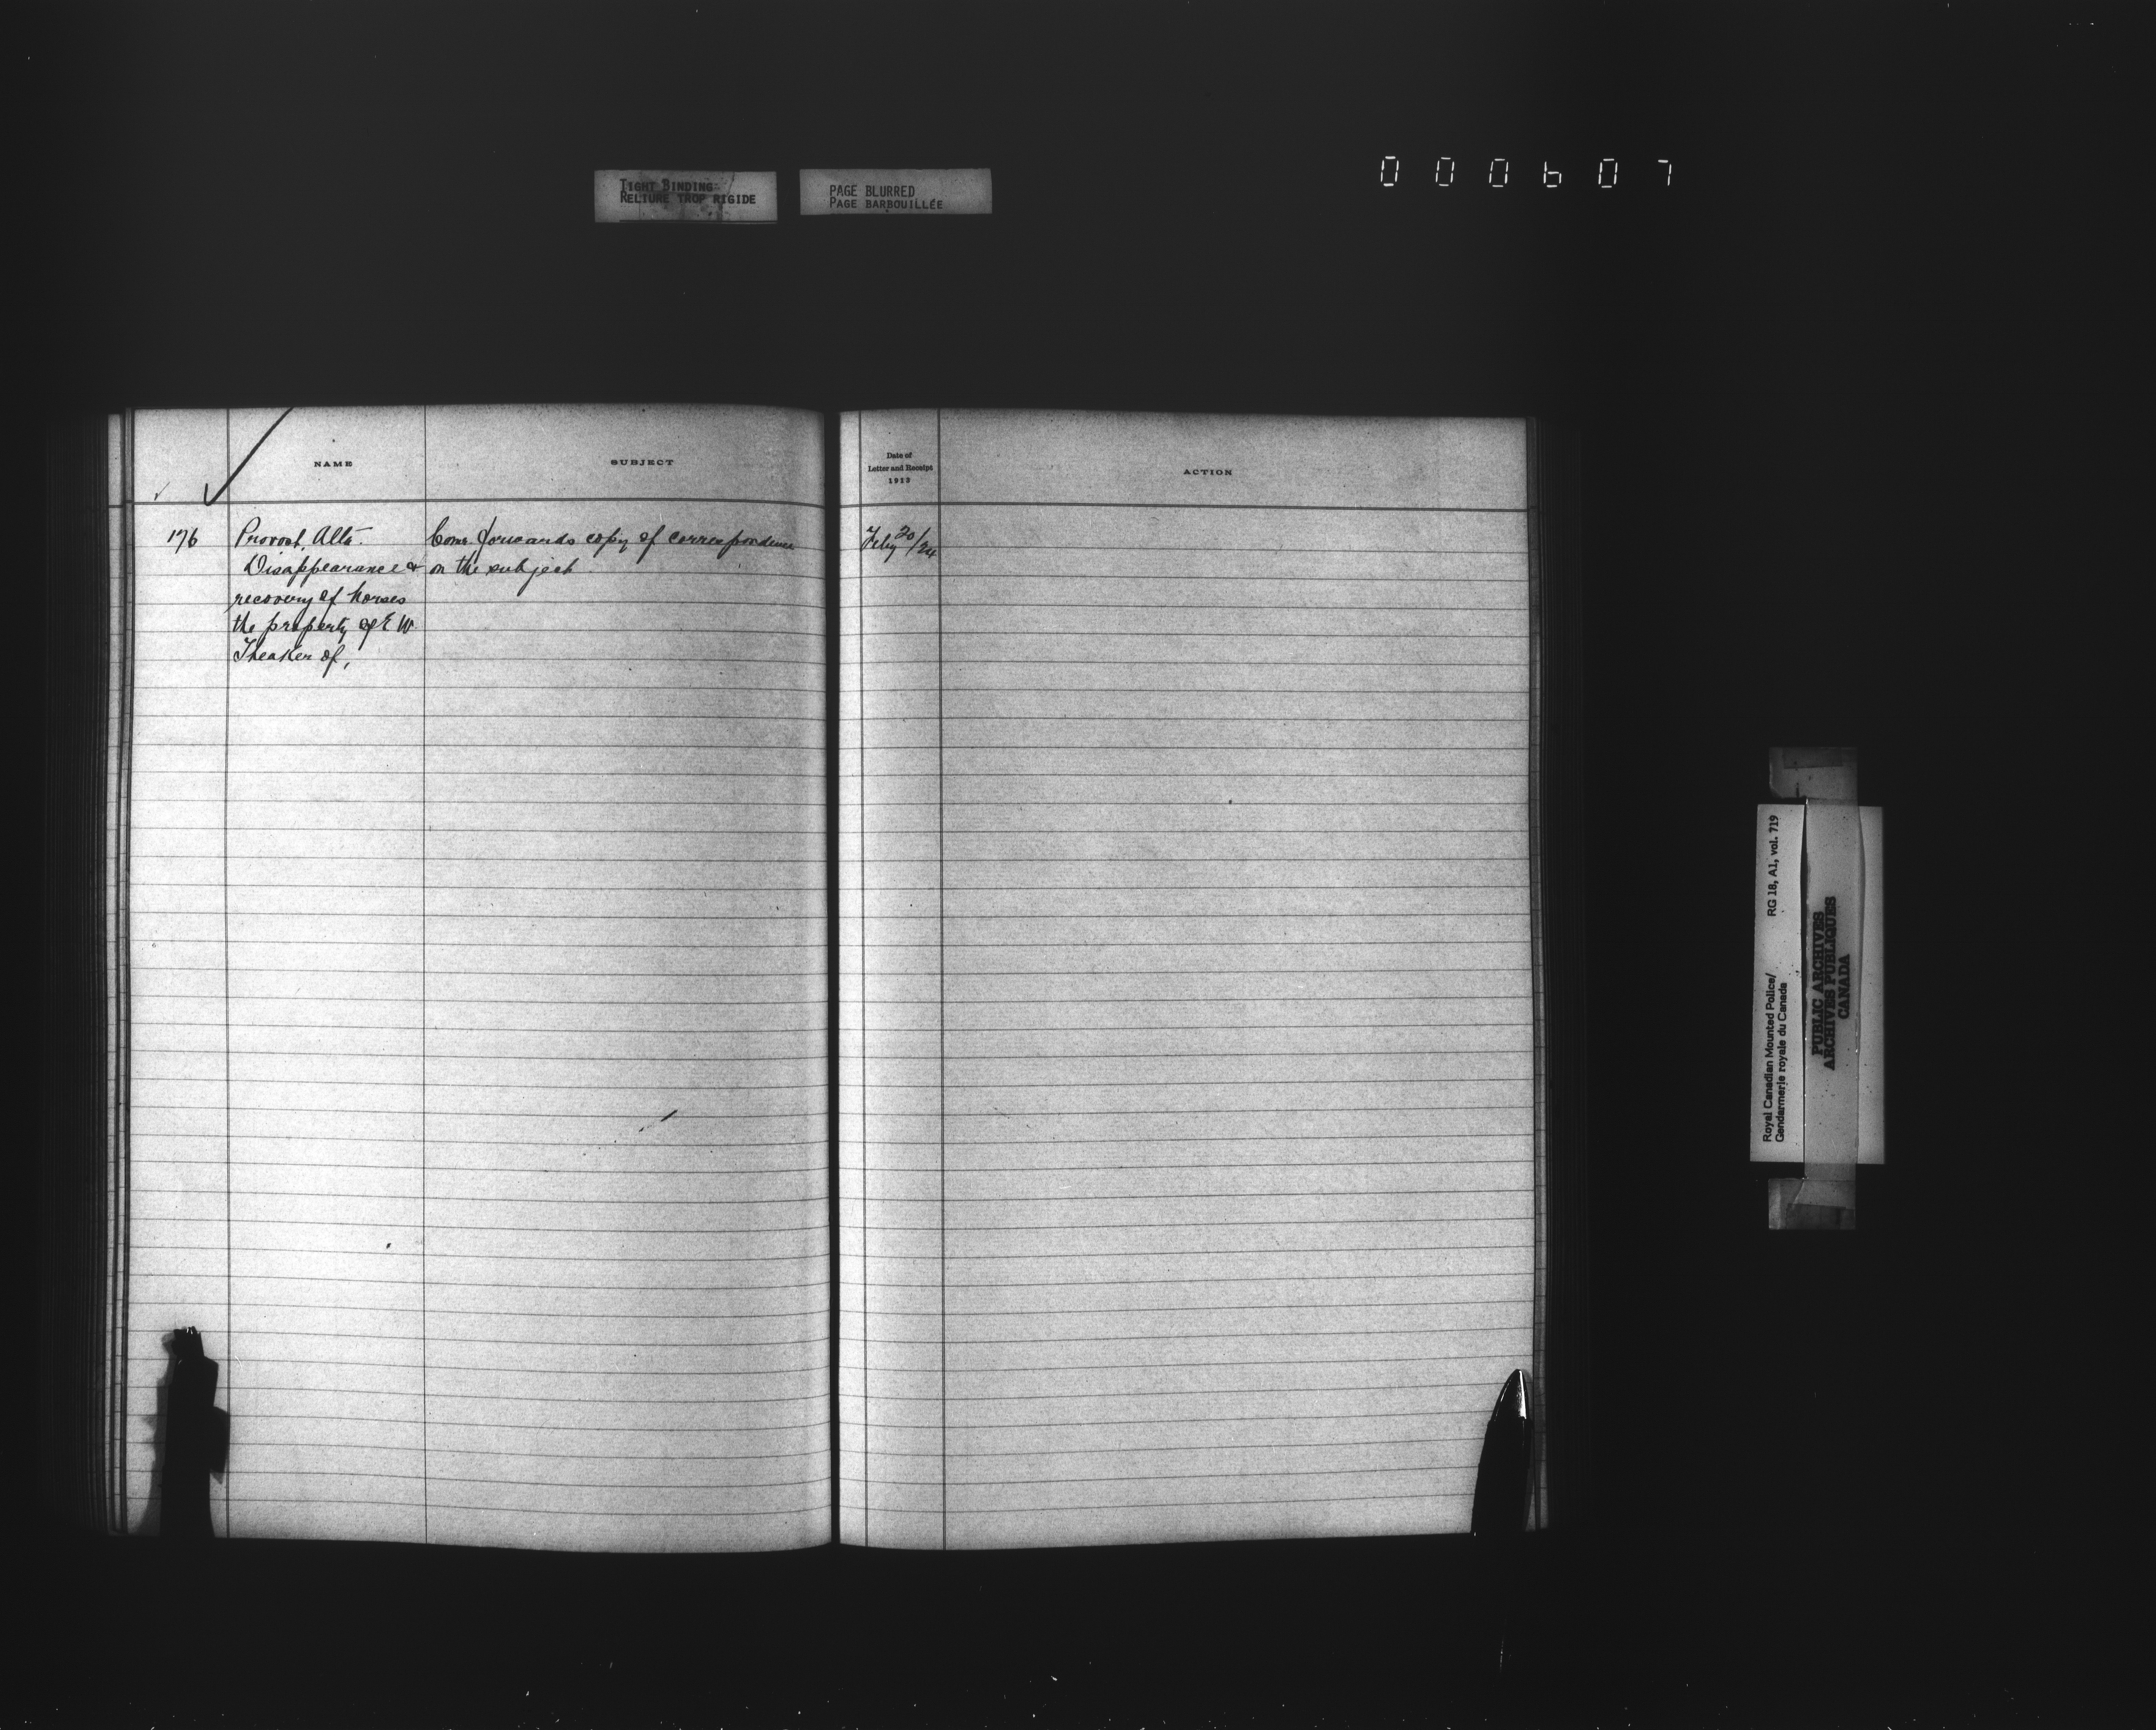 TIGHT BINDING
RELIURE TROP RIGIDE
PAGE BLURRED
PAGE BARBOUILLÉE
000607
NAME
SUBJECT
Date of
Letter and Receipt
1913
ACTION
176
Provost, Alta.
Disappearance &
recovery of horses
the property of E W.
Theaker of,
Com. forwards copy of correspondence
on the subject.
Feby 20/24
Royal Canadian Mounted Police/
Gendarmerie royale du Canada
RG 18, A1, vol. 719
PUBLIC ARCHIVES
ARCHIVES PUBLIQUES
CANADA